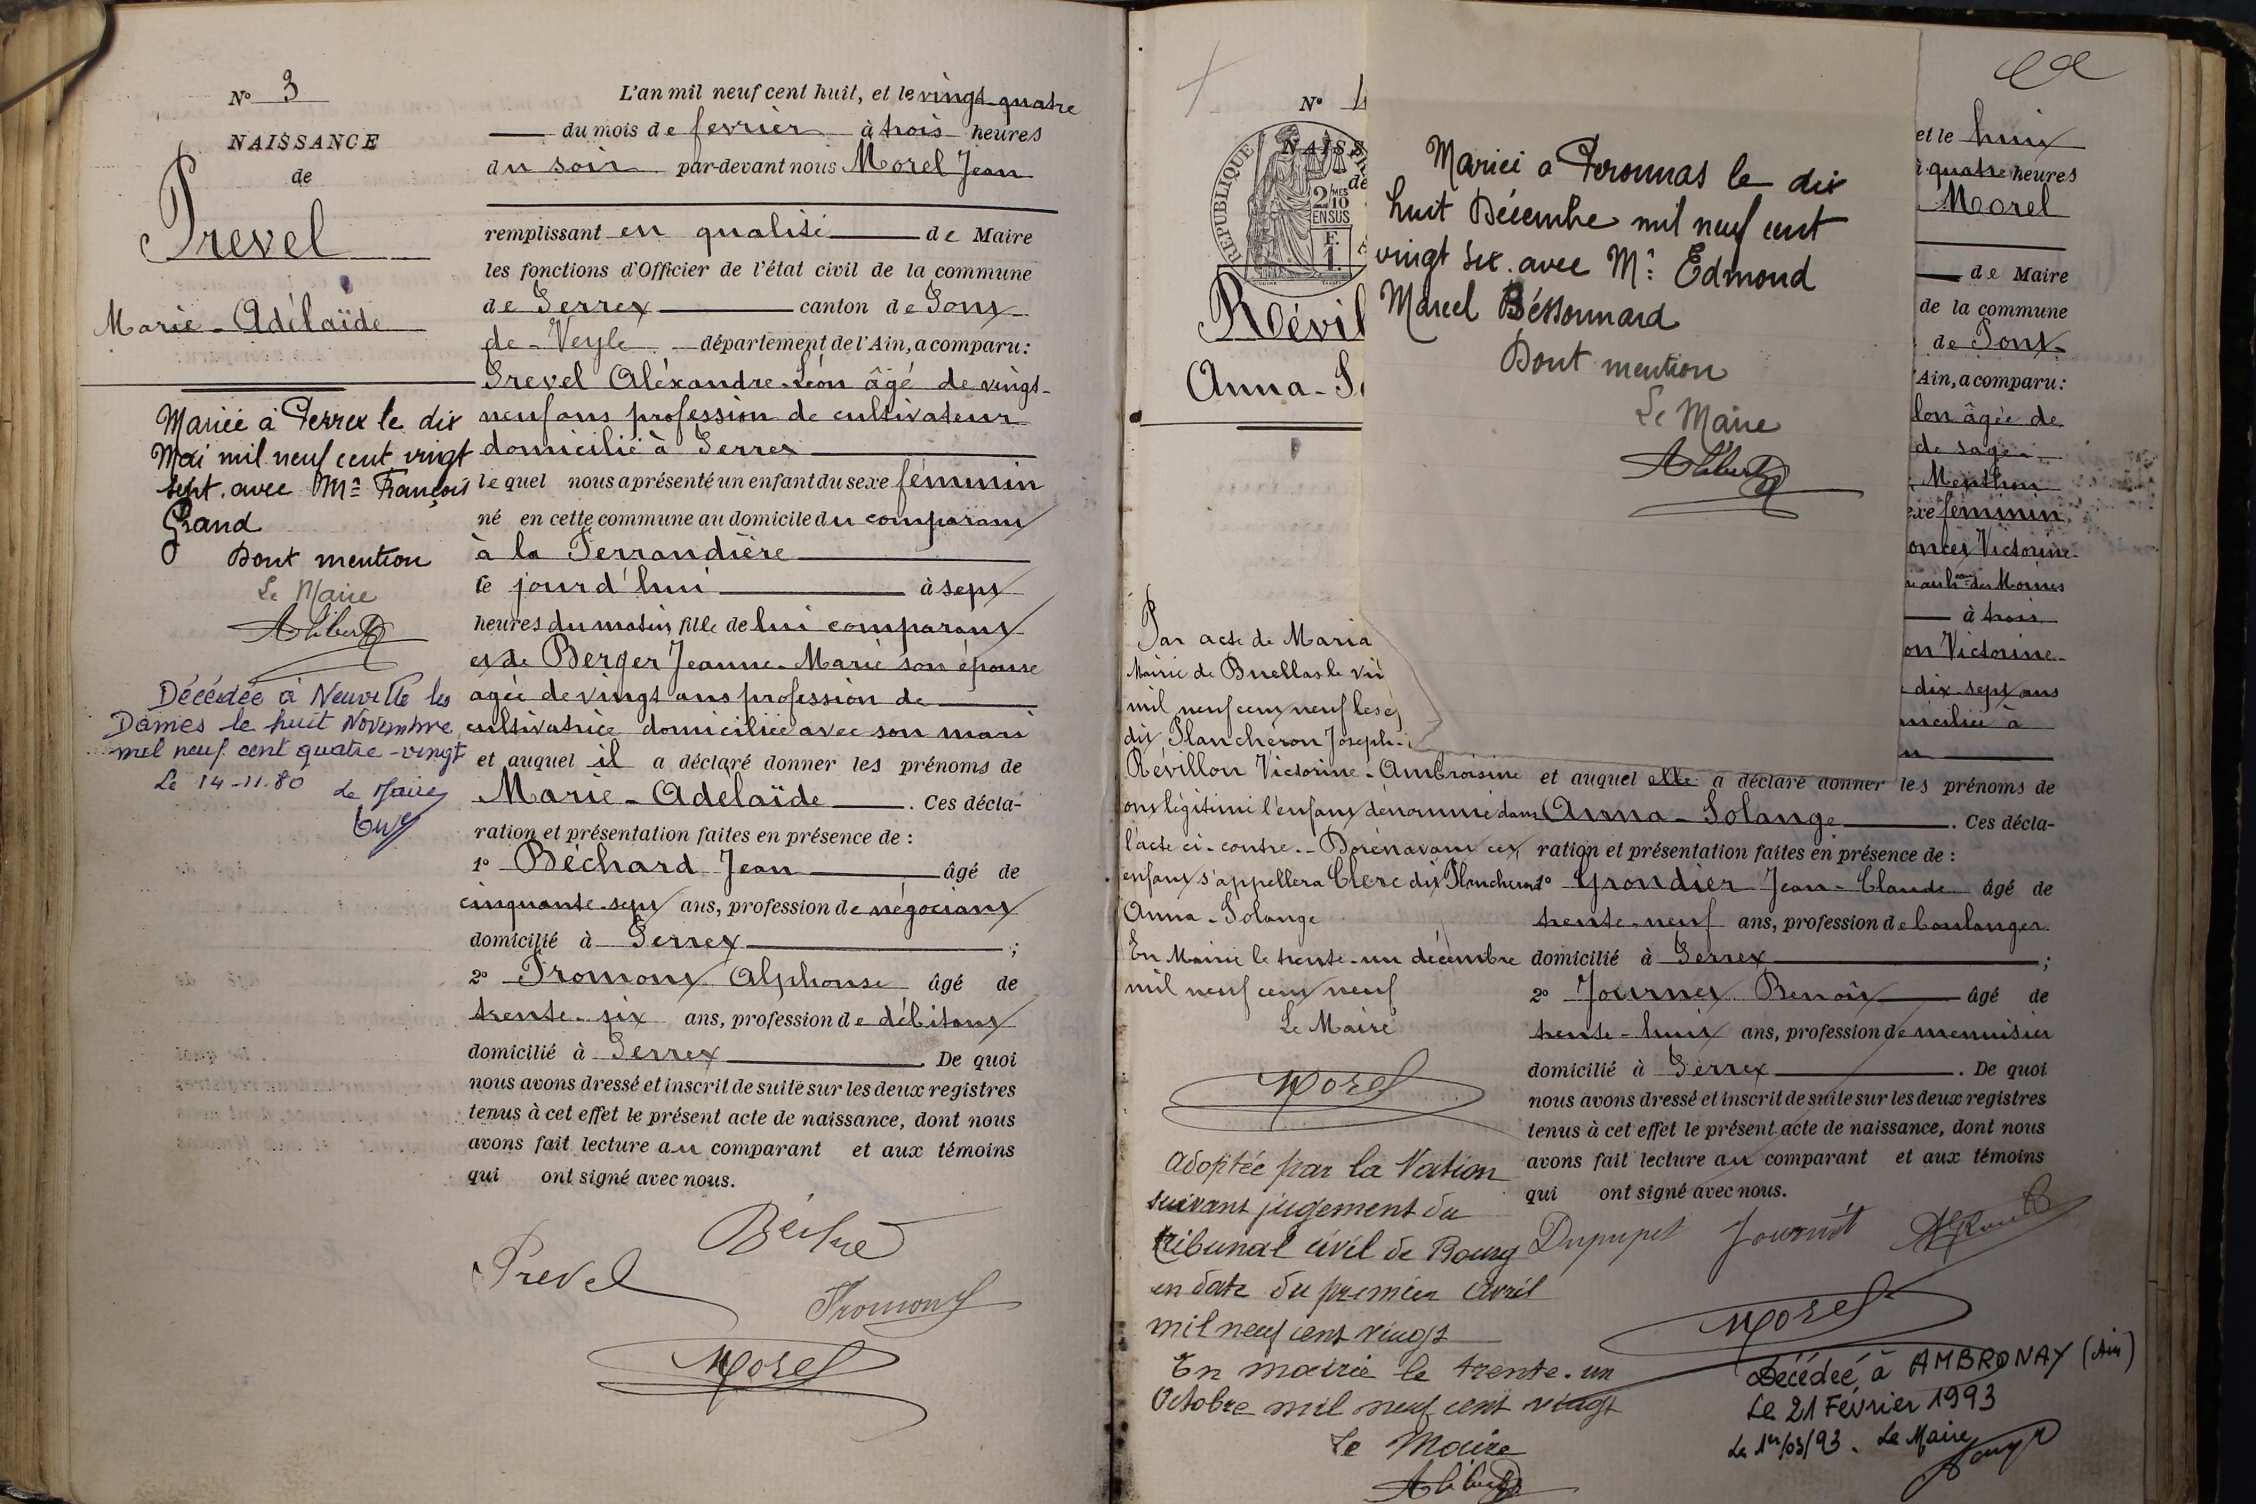 N° 3
NAISSANCE
de
Prevel
Marie-Adélaïde
Mariée à Perrex le dix
Mai mil neuf cent vingt
sept. avec Mr François
Grand
Dont mention
Le Maire
Décédée à Neuville les
Dames le huit Novembre
mil neuf cent quatre-vingt
Le 14-11-80 Le Maire
L'an mil neuf cent huit, et le vingt-quatre
du mois de fevrier à trois heures
du soir par-devant nous Morel Jean
remplissant en qualité de Maire
les fonctions d'Officier de l'état civil de la commune
de Perrex canton de Pont
de-Veyle département de l'Ain, a comparu:
Prevel Aléxandre-Léon âgé de vingt-
neuf ans profession de cultivateur
domicilié à Perrex
lequel nous a présenté un enfant du sexe féminin
né en cette commune au domicile du comparant
à la Ferrandière
le jourd'hui à sept
heures du matin, fille de lui comparant
et de Berger Jeanne-Marie son épouse
agée de vingt ans profession de
cultivatrice domiciliée avec son mari
et auquel il a déclaré donner les prénoms de
Marie-Adélaïde. Ces décla-
ration et présentation faites en présence de :
1° Béchard Jean âgé de
cinquante-sept ans, profession de négociant
domicilié à Perrex ;
2° Fromont Alphonse âgé de
trente-six ans, profession de débitant
domicilié à Perrex. De quoi
nous avons dressé et inscrit de suite sur les deux registres
tenus à cet effet le présent acte de naissance, dont nous
avons fait lecture au comparant et aux témoins
qui ont signé avec nous.
Prevel
Fromont
Morel
N° 4
NAISS
de
REPUBLIQUE
2/10
EN SUS
F.
1.
Révil
Anna-So
Mariée a Peronnas le dix
huit Décembre mil neuf cent
vingt six. avec Mr Edmond
Marcel Béssonnard
Dont mention
Le Maire
et le huit
quatre heures
Morel
de Maire
de la commune
de Pont
'Ain, a comparu:
lon âgée de
de sage
Menthon
exe féminin
Victorine
des Moines
à trois
on Victorine
dix-sept ans
niciliée à
Par acte de Maria
Mairie de Buellas le
mil neuf cent neuf les
dit Plancheron Joseph
Révillon Victorine-Ambroisine
ont légitimé l'enfant dénommé dans
l'acte ci-contre.- Dorénavant cet
enfant s'appellera Clerc dit Plancheron
Anna-Solange
En Mairie le trente-un décembre
mil neuf cent neuf
Le Maire
Morel
Adoptée par la Nation
suivant jugement du
tribunal civil de Bourg
en date du premier Avril
mil neuf cent vingt
En mairie le trente-un
Octobre mil neuf cent vingt
Le Maire
et auquel elle a déclaré donner les prénoms de
Anna-Solange. Ces décla-
ration et présentation faites en présence de :
1° Grondier Jean-Claude âgé de
trente-neuf ans, profession de boulanger
domicilié à Perrex ;
2° Journet Benoît âgé de
trente-huit ans, profession de menuisier
domicilié à Perrex. De quoi
nous avons dressé et inscrit de suite sur les deux registres
tenus à cet effet le présent acte de naissance, dont nous
avons fait lecture au comparant et aux témoins
qui ont signé avec nous.
Dupupet Journet
Morel
Décédée à AMBRONAY (Ain)
Le 21 Février 1993
Le 1er/03/93. Le Maire